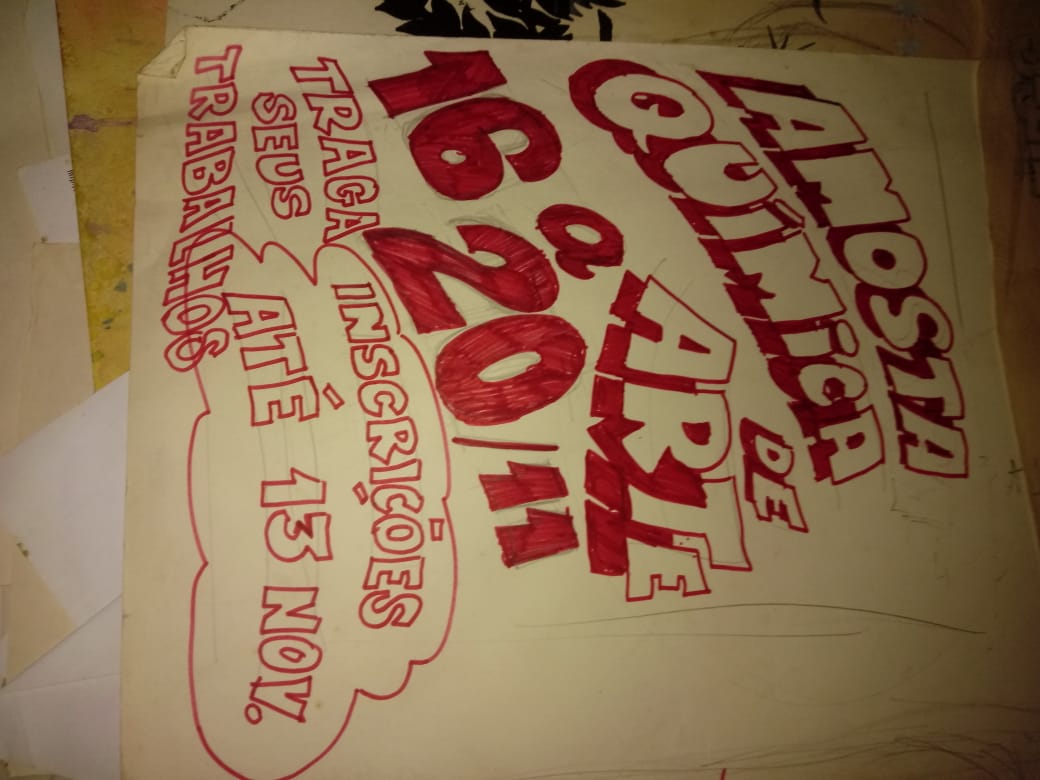 AMOSTA
QUÍMICA
DE
ARTE
16 a 20/11
TRAGA
SEUS
TRABALHOS
INSCRIÇÕES
ATÉ 13 NOV.